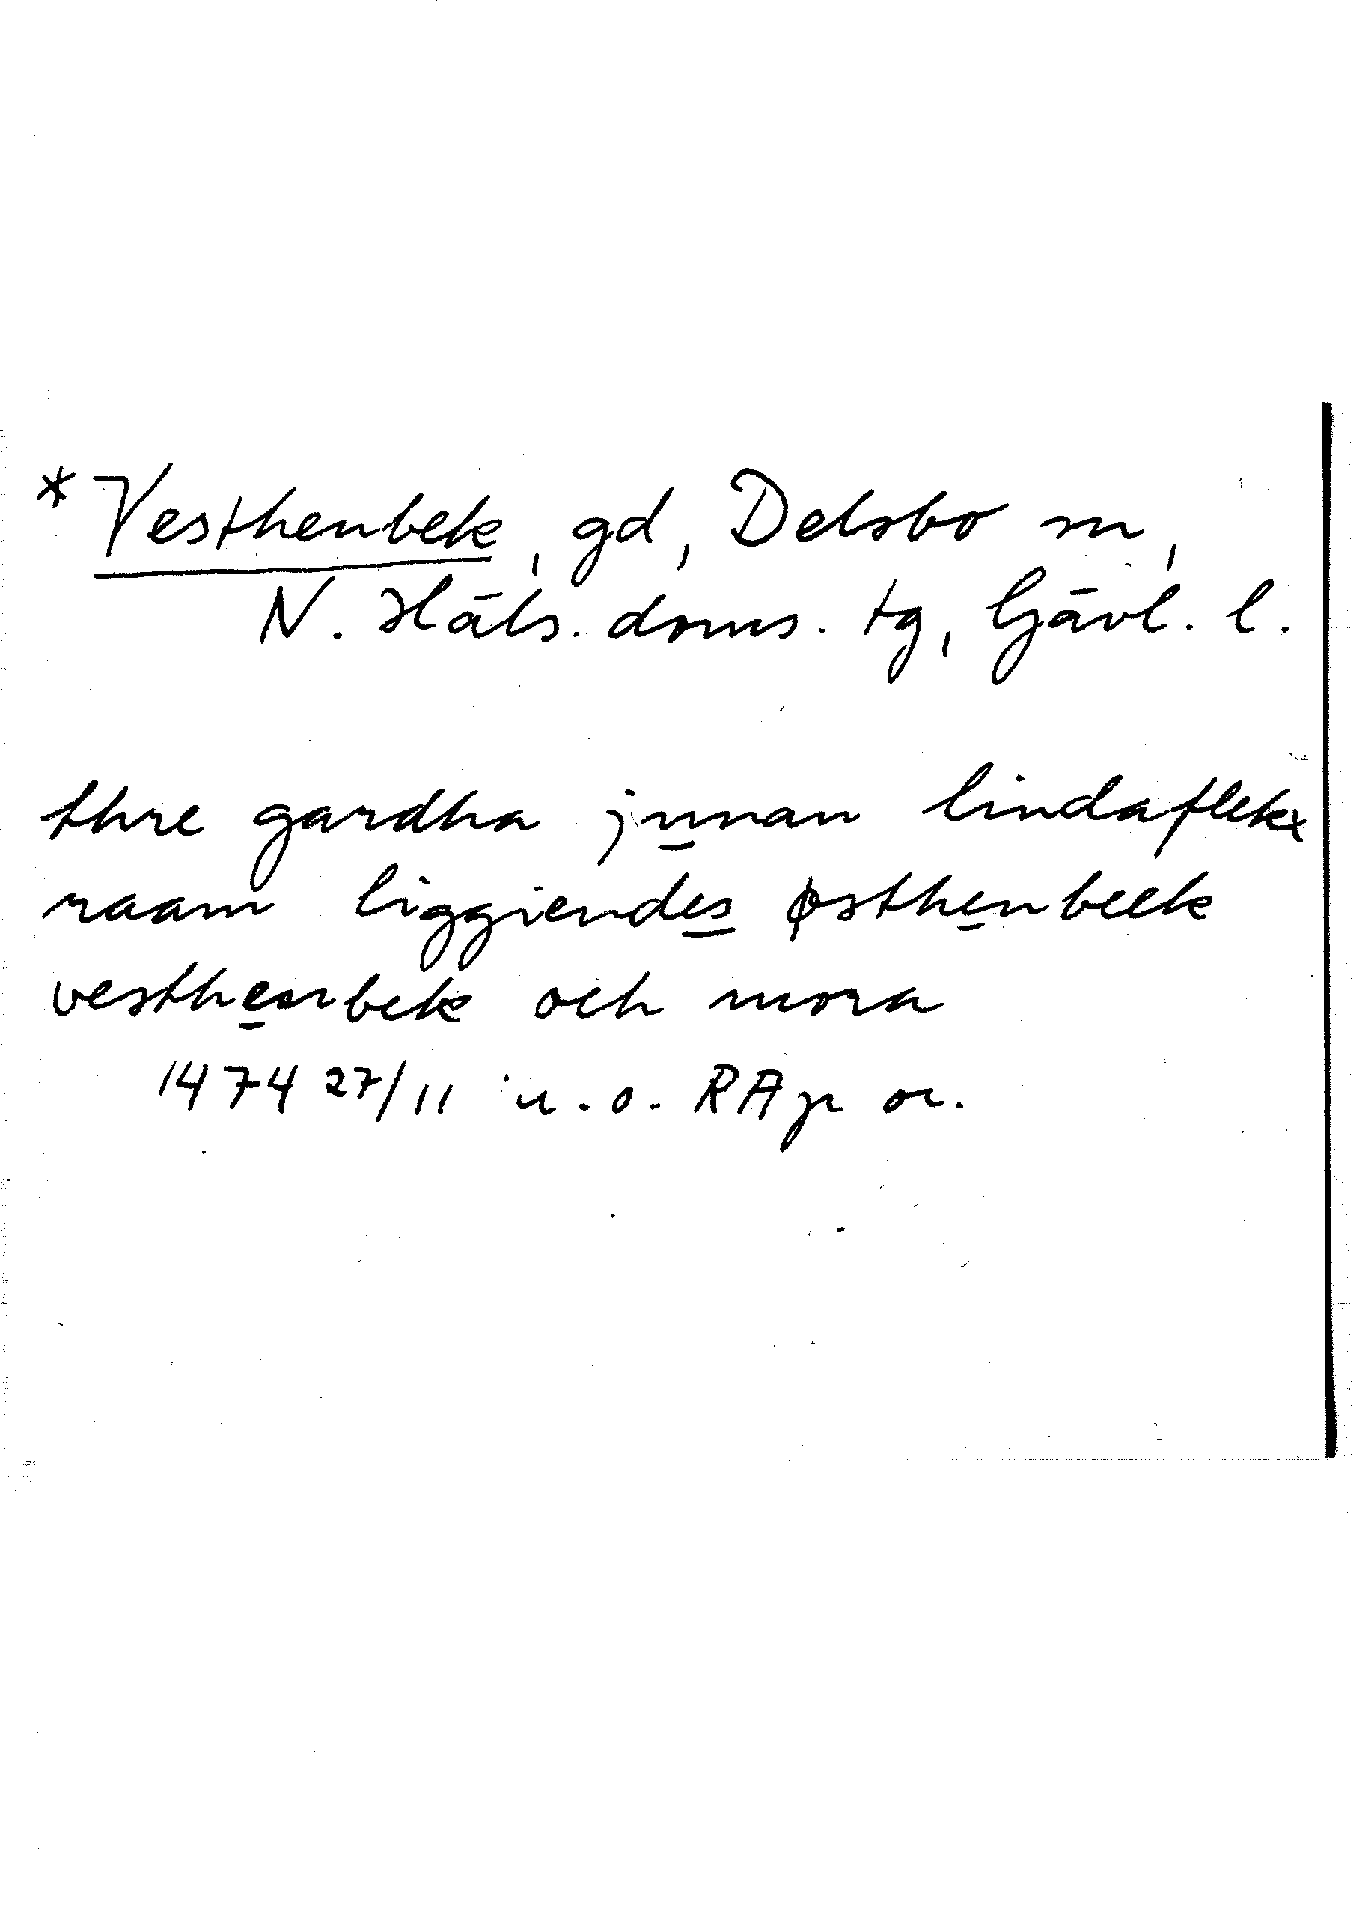 * Vesthenbek, gd, Delsbo sn,
N. Häls. doms. tg, Gävl. l.
thre gardha junan lindaflekx
raam liggiendes østhenbeek
vesthenbek och mora
1474 27/11 u. o. RAp or.